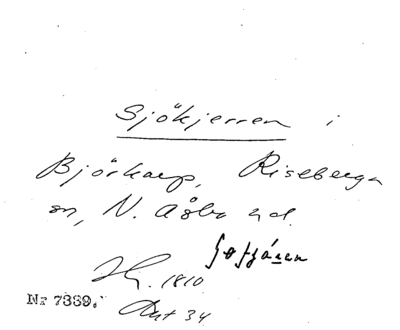 Sjökjerren i
Björkarp, Riseberga
sn, N. Åsbo hd.
1810
Nr 7889.
Akt 34